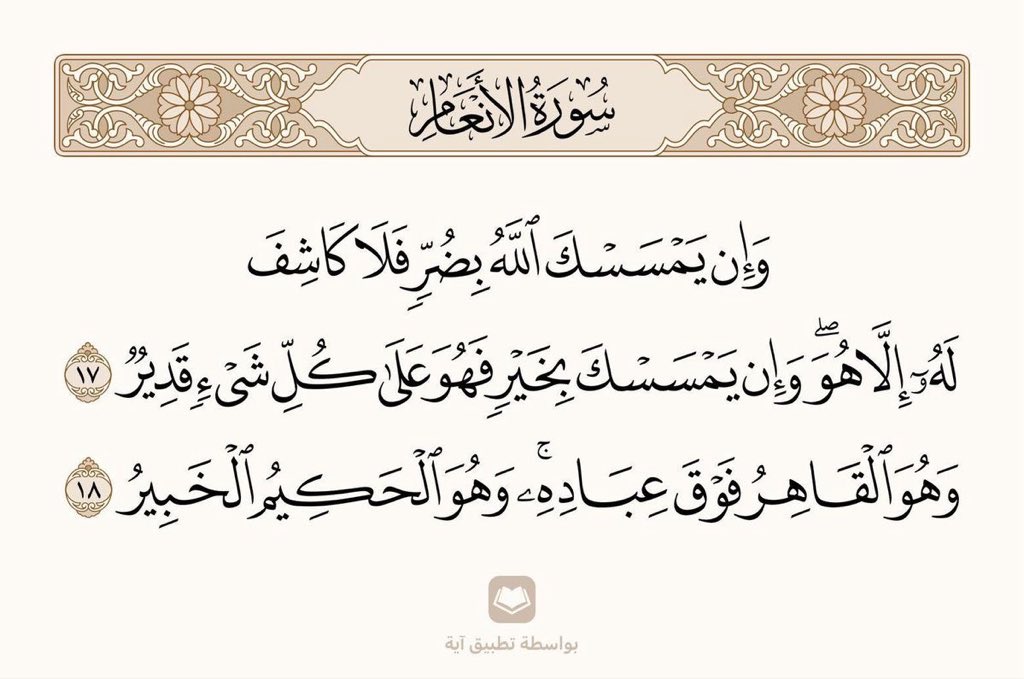 سُورَةُ الأَنْعَامِ
وَإِن يَمْسَسْكَ ٱللَّهُ بِضُرٍّ فَلَا كَاشِفَ
لَهُۥٓ إِلَّا هُوَۖ وَإِن يَمْسَسْكَ بِخَيْرٍ فَهُوَ عَلَىٰ كُلِّ شَىْءٍ قَدِيرٌ ١٧
وَهُوَ ٱلْقَاهِرُ فَوْقَ عِبَادِهِۦۚ وَهُوَ ٱلْحَكِيمُ ٱلْخَبِيرُ ١٨
بواسطة تطبيق آية